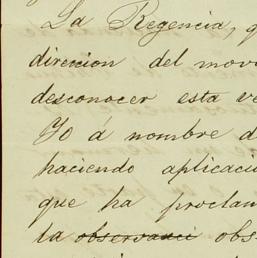 La Regencia, q
direccion del mov
desconocer esta ve
Yo á nombre d
haciendo aplicaci
que ha proclam
la observanci obs